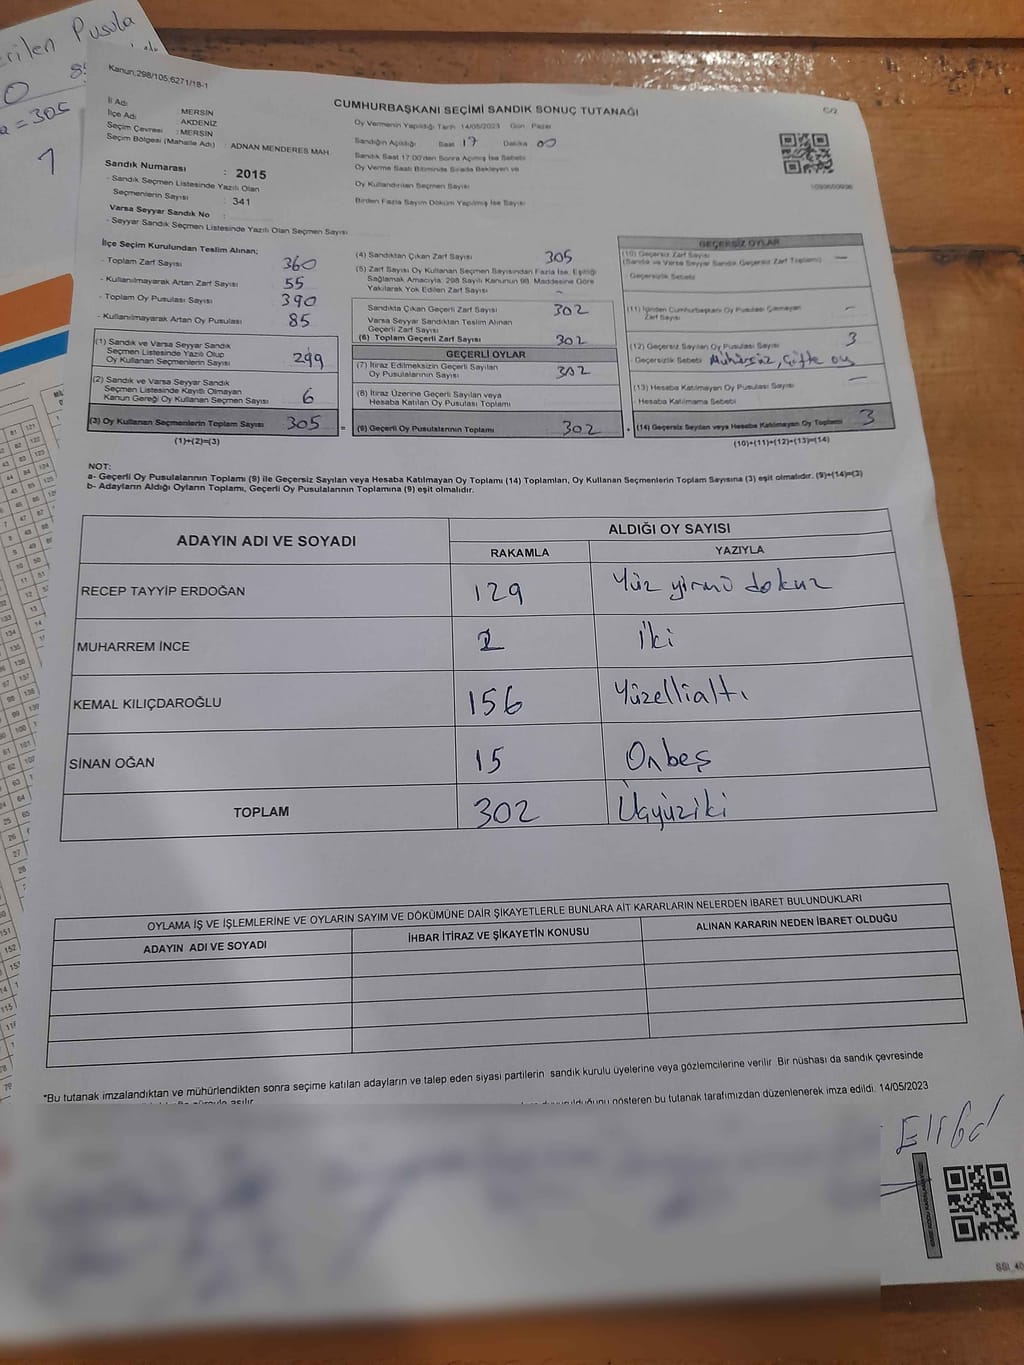 erilen Pusula
= 305
Kanun:298/105,6271/18-1
CUMHURBAŞKANI SEÇİMİ SANDIK SONUÇ TUTANAĞI
C/2
İl Adı : MERSİN
İlçe Adı : AKDENİZ
Seçim Çevresi : MERSİN
Seçim Bölgesi (Mahalle Adı) : ADNAN MENDERES MAH.
Sandık Numarası : 2015
- Sandık Seçmen Listesinde Yazılı Olan
Seçmenlerin Sayısı : 341
Varsa Seyyar Sandık No :
- Seyyar Sandık Seçmen Listesinde Yazılı Olan Seçmen Sayısı
Oy Vermenin Yapıldığı Tarih 14/05/2023 Gün Pazar
Sandığın Açıldığı Saat 17 Dakika 00
Sandık Saat 17:00'den Sonra Açılmış İse Sebebi
Oy Verme Saati Bitiminde Sırada Bekleyen ve
Oy Kullandırılan Seçmen Sayısı
Birden Fazla Sayım Döküm Yapılmış İse Sayısı
İlçe Seçim Kurulundan Teslim Alınan;
- Toplam Zarf Sayısı 360
- Kullanılmayarak Artan Zarf Sayısı 55
- Toplam Oy Pusulası Sayısı 390
- Kullanılmayarak Artan Oy Pusulası 85
(1) Sandık ve Varsa Seyyar Sandık
Seçmen Listesinde Yazılı Olup
Oy Kullanan Seçmenlerin Sayısı 299
(2) Sandık ve Varsa Seyyar Sandık
Seçmen Listesinde Kayıtlı Olmayan
Kanun Gereği Oy Kullanan Seçmen Sayısı 6
(3) Oy Kullanan Seçmenlerin Toplam Sayısı 305
(1)+(2)=(3)
(4) Sandıktan Çıkan Zarf Sayısı 305
(5) Zarf Sayısı Oy Kullanan Seçmen Sayısından Fazla İse, Eşitliği
Sağlamak Amacıyla; 298 Sayılı Kanunun 98. Maddesine Göre
Yakılarak Yok Edilen Zarf Sayısı -
Sandıkta Çıkan Geçerli Zarf Sayısı 302
Varsa Seyyar Sandıktan Teslim Alınan
Geçerli Zarf Sayısı
(6) Toplam Geçerli Zarf Sayısı 302
GEÇERLİ OYLAR
(7) İtiraz Edilmeksizin Geçerli Sayılan
Oy Pusulalarının Sayısı 302
(8) İtiraz Üzerine Geçerli Sayılan veya
Hesaba Katılan Oy Pusulası Toplamı
= (9) Geçerli Oy Pusulalarının Toplamı 302
GEÇERSİZ OYLAR
(10) Geçersiz Zarf Sayısı —
(Sandık ve Varsa Seyyar Sandık Geçersiz Zarf Toplamı)
- Geçersizlik Sebebi
(11) İçinden Cumhurbaşkanı Oy Pusulası Çıkmayan
Zarf Sayısı —
(12) Geçersiz Sayılan Oy Pusulası Sayısı 3
- Geçersizlik Sebebi Mühürsüz, Çifte oy
(13) Hesaba Katılmayan Oy Pusulası Sayısı —
- Hesaba Katılmama Sebebi
+ (14) Geçersiz Sayılan veya Hesaba Katılmayan Oy Toplamı 3
(10)+(11)+(12)+(13)=(14)
NOT:
a- Geçerli Oy Pusulalarının Toplamı (9) ile Geçersiz Sayılan veya Hesaba Katılmayan Oy Toplamı (14) Toplamları, Oy Kullanan Seçmenlerin Toplam Sayısına (3) eşit olmalıdır. (9)+(14)=(3)
b- Adayların Aldığı Oyların Toplamı, Geçerli Oy Pusulalarının Toplamına (9) eşit olmalıdır.
ADAYIN ADI VE SOYADI ALDIĞI OY SAYISI
RAKAMLA YAZIYLA
RECEP TAYYİP ERDOĞAN 129 Yüz yirmi dokuz
MUHARREM İNCE 2 İki
KEMAL KILIÇDAROĞLU 156 Yüzellialtı
SİNAN OĞAN 15 Onbeş
TOPLAM 302 Üçyüziki
OYLAMA İŞ VE İŞLEMLERİNE VE OYLARIN SAYIM VE DÖKÜMÜNE DAİR ŞİKAYETLERLE BUNLARA AİT KARARLARIN NELERDEN İBARET BULUNDUKLARI
ADAYIN ADI VE SOYADI İHBAR İTİRAZ VE ŞİKAYETİN KONUSU ALINAN KARARIN NEDEN İBARET OLDUĞU
*Bu tutanak imzalandıktan ve mühürlendikten sonra seçime katılan adayların ve talep eden siyasi partilerin sandık kurulu üyelerine veya gözlemcilerine verilir Bir nüshası da sandık çevresinde
gösteren bu tutanak tarafımızdan düzenlenerek imza edildi. 14/05/2023